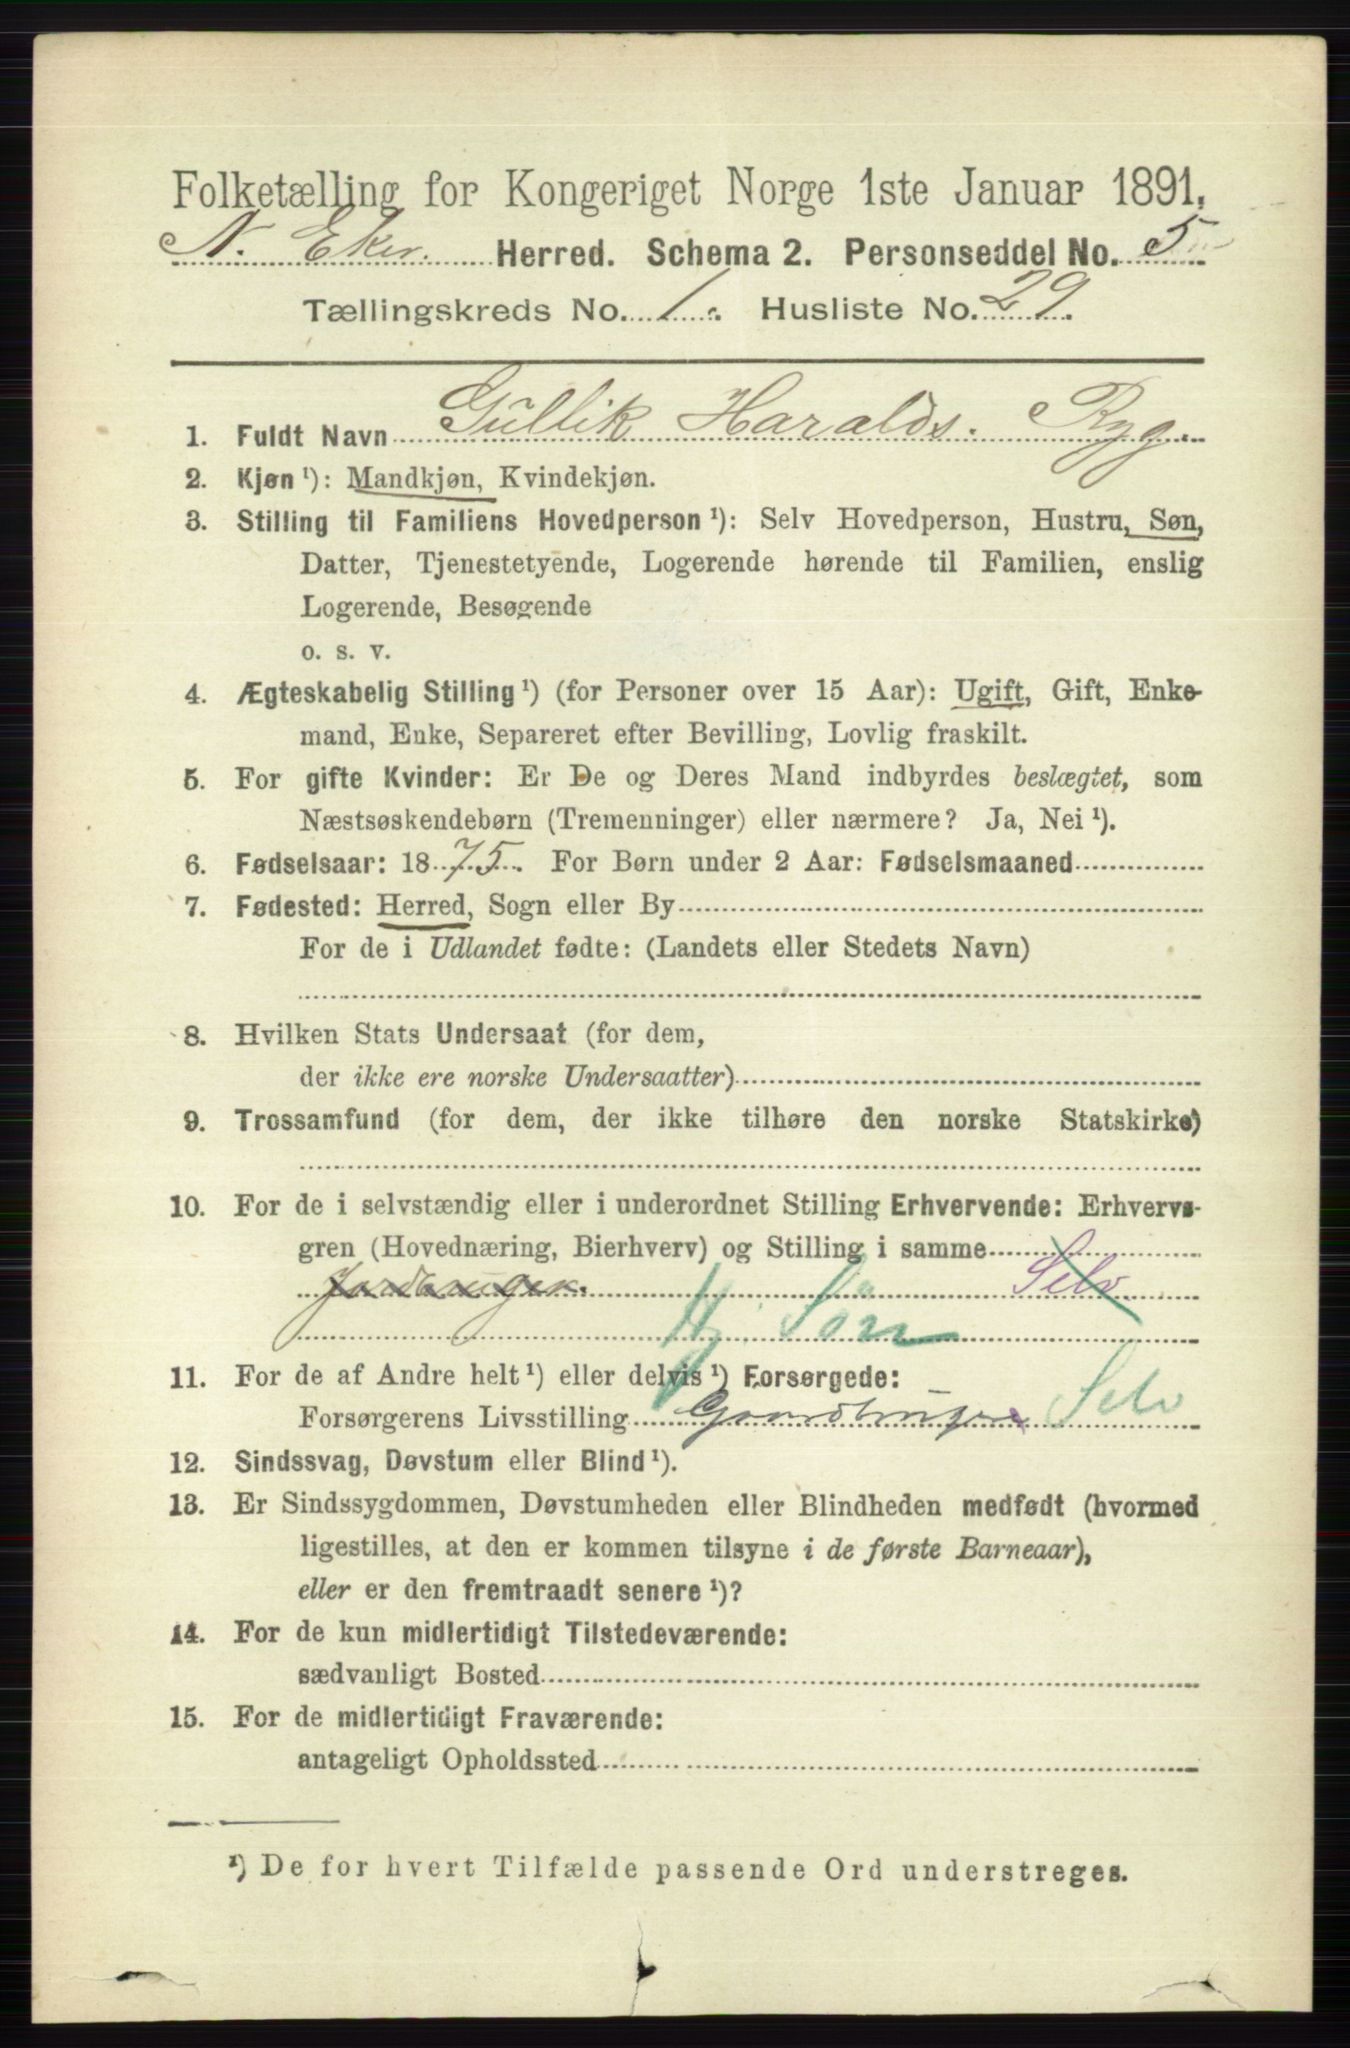 Folketælling for Kongeriget Norge 1ste Januar 1891.
N. Eker. Herred. Schema 2. Personseddel No. 5
Tællingskreds No. 1. Husliste No. 29.
1. Fuldt Navn Gullik Haralds. Ryg.
2. Kjøn ¹): Mandkjøn, Kvindekjøn.
3. Stilling til Familiens Hovedperson ¹): Selv Hovedperson, Hustru, Søn,
Datter, Tjenestetyende, Logerende hørende til Familien, enslig
Logerende, Besøgende
o. s. v.
4. Ægteskabelig Stilling ¹) (for Personer over 15 Aar): Ugift, Gift, Enke-
mand, Enke, Separeret efter Bevilling, Lovlig fraskilt.
5. For gifte Kvinder: Er De og Deres Mand indbyrdes beslægtet, som
Næstsøskendebørn (Tremenninger) eller nærmere? Ja, Nei ¹).
6. Fødselsaar: 1875. For Børn under 2 Aar: Fødselsmaaned
7. Fødested: Herred, Sogn eller By
For de i Udlandet fødte: (Landets eller Stedets Navn)
8. Hvilken Stats Undersaat (for dem,
der ikke ere norske Undersaatter)
9. Trossamfund (for dem, der ikke tilhøre den norske Statskirke)
10. For de i selvstændig eller i underordnet Stilling Erhvervende: Erhvervs-
gren (Hovednæring, Bierhverv) og Stilling i samme
Jordbruger. Selv.
Hj. Sön
11. For de af Andre helt ¹) eller delvis ¹) Forsørgede:
Forsørgerens Livsstilling Gaardbruger Selv
12. Sindssvag, Døvstum eller Blind ¹).
13. Er Sindssygdommen, Døvstumheden eller Blindheden medfødt (hvormed
ligestilles, at den er kommen tilsyne i de første Barneaar),
eller er den fremtraadt senere ¹)?
14. For de kun midlertidigt Tilstedeværende:
sædvanligt Bosted
15. For de midlertidigt Fraværende:
antageligt Opholdssted
¹) De for hvert Tilfælde passende Ord understreges.